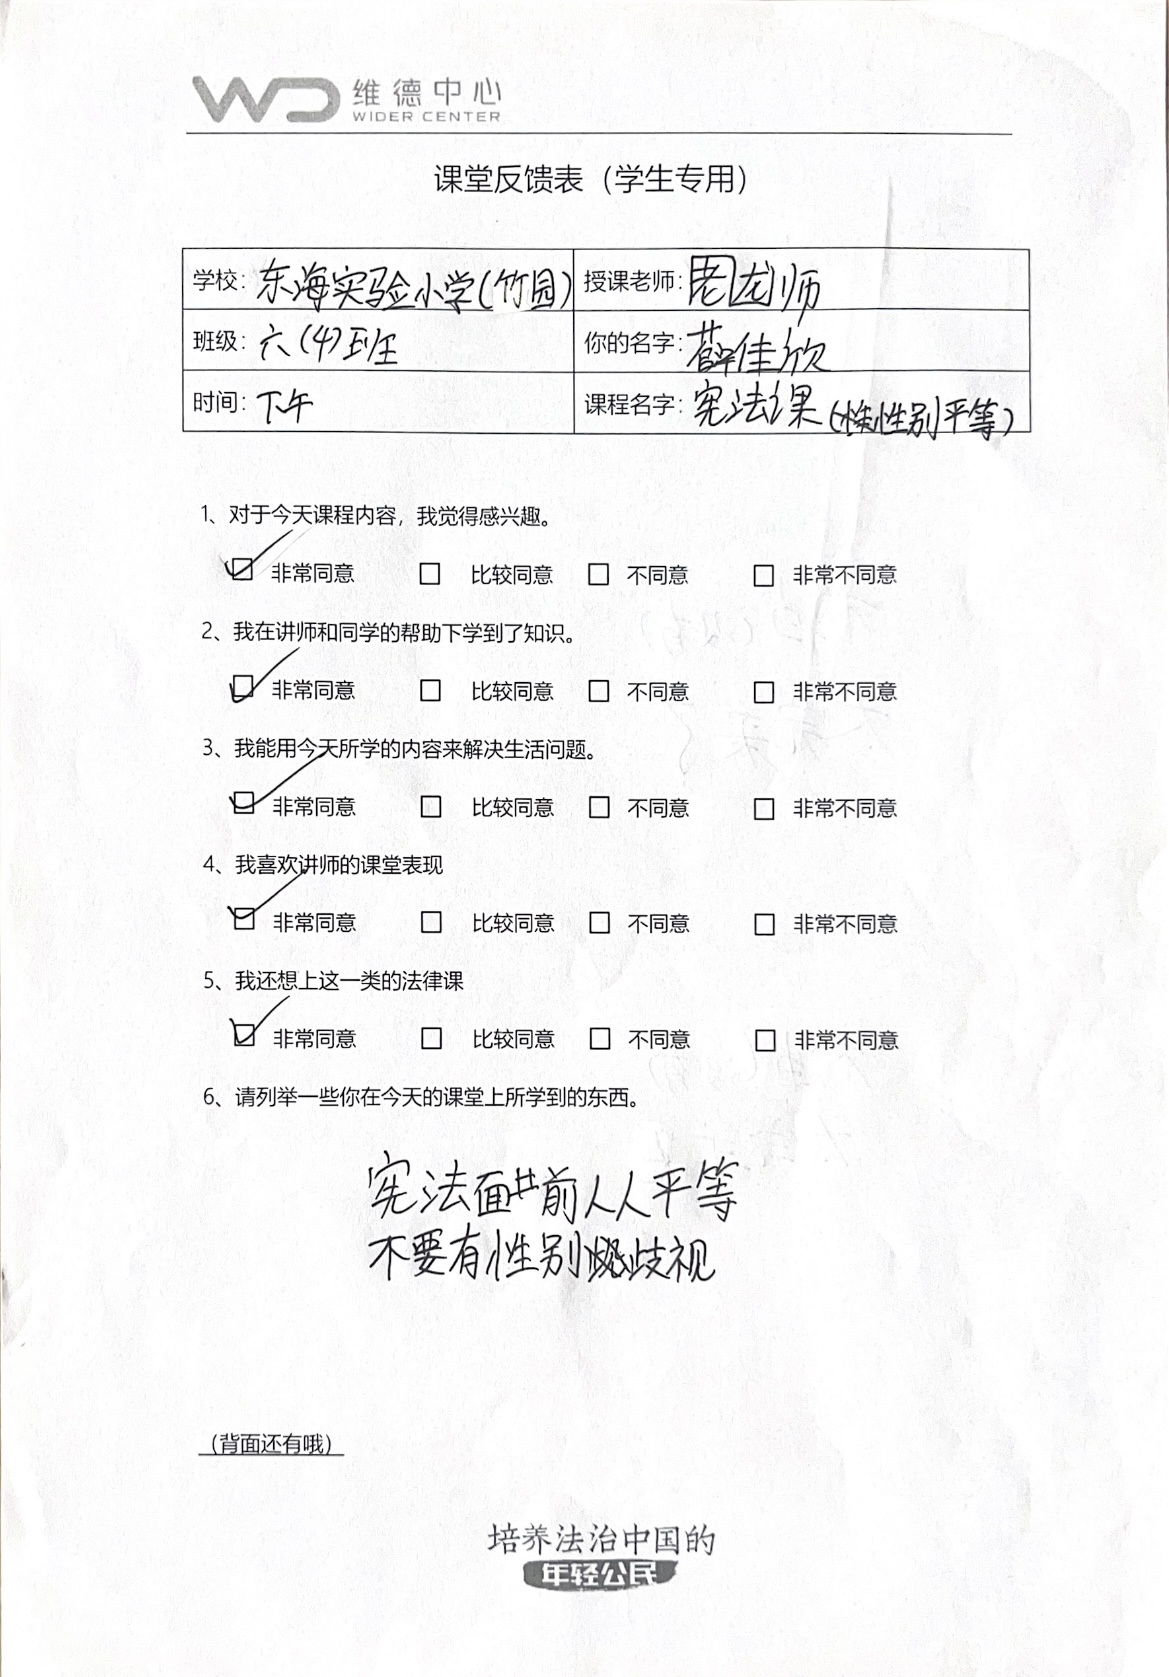 维德中心
WIDER CENTER
课堂反馈表（学生专用）
学校：东海实验小学（竹园） 授课老师：龙师
班级：六（4）班 你的名字：薛佳欣
时间：下午 课程名字：宪法课（性别平等）
1、对于今天课程内容，我觉得感兴趣。
非常同意 比较同意 不同意 非常不同意
2、我在讲师和同学的帮助下学到了知识。
非常同意 比较同意 不同意 非常不同意
3、我能用今天所学的内容来解决生活问题。
非常同意 比较同意 不同意 非常不同意
4、我喜欢讲师的课堂表现
非常同意 比较同意 不同意 非常不同意
5、我还想上这一类的法律课
非常同意 比较同意 不同意 非常不同意
6、请列举一些你在今天的课堂上所学到的东西。
宪法面前人人平等
不要有性别歧视
（背面还有哦）
培养法治中国的
年轻公民